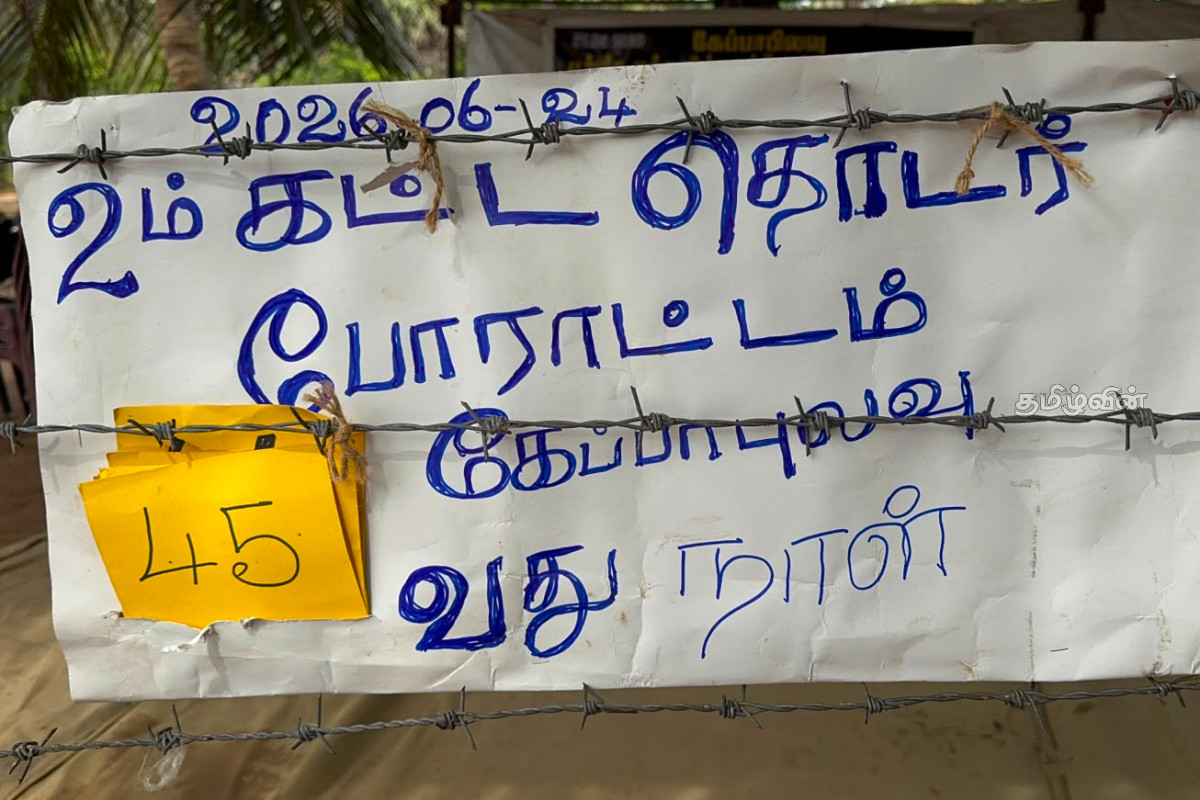 கேப்பாபிலவு
2026-06-24
2ம் கட்ட தொடர்
போராட்டம்
கேப்பாபுலவு
தமிழ்வின்
45 வது நாள்